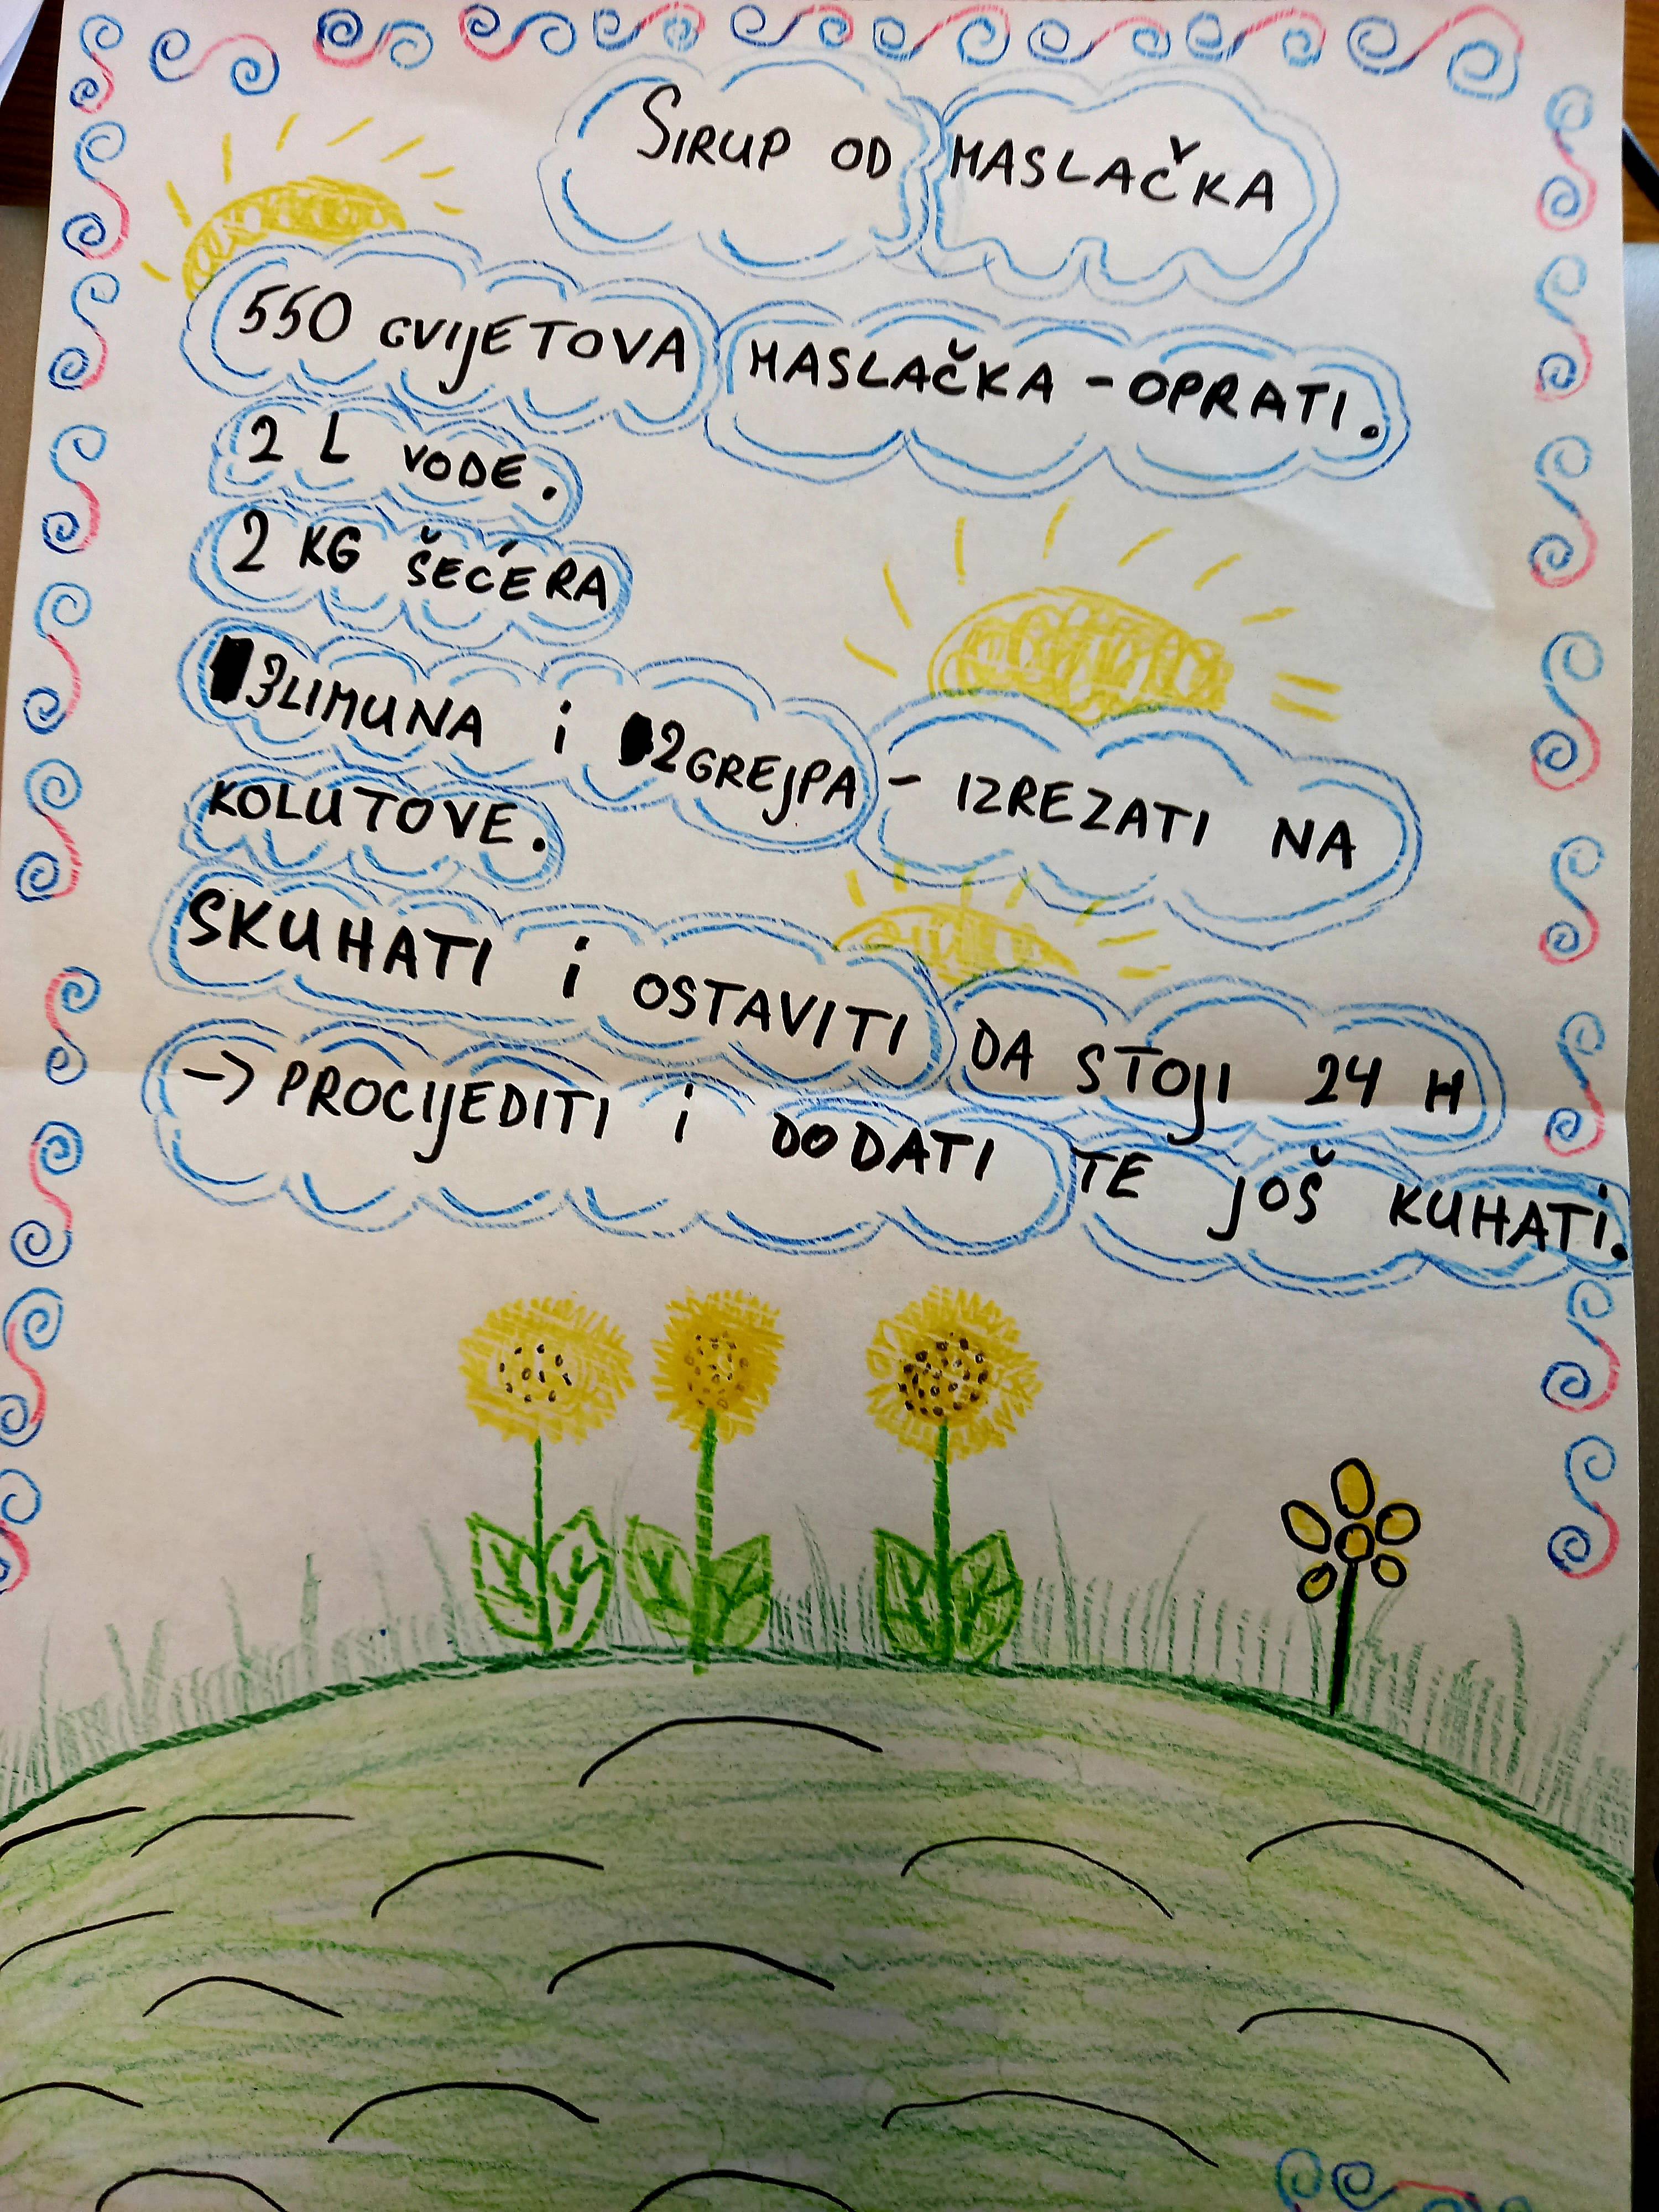 SIRUP OD MASLAČKA
550 CVIJETOVA MASLAČKA - OPRATI.
2 L VODE.
2 KG ŠEĆERA
3 LIMUNA i 2 GREJPA - IZREZATI NA
KOLUTOVE.
SKUHATI i OSTAVITI DA STOJI 24 H
-> PROCIJEDITI i DODATI TE JOŠ KUHATI.